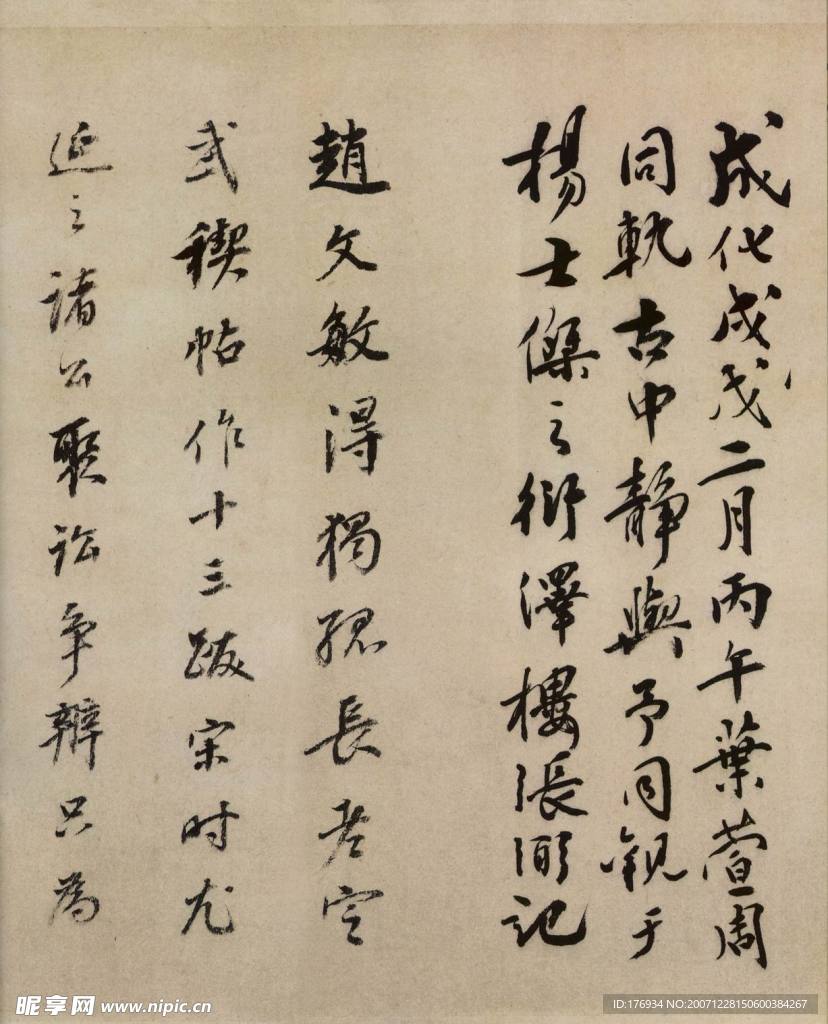 成化戊戌二月丙午葉萱周
同軌古中靜與予同觀于
楊士傑之衍澤樓張弼記
趙文敏得獨孤長老定
武禊帖作十三跋宋時尤
延之諸公聚訟爭辨只為
昵享网 www.nipic.cn
ID:176934 NO:20071228150600384267